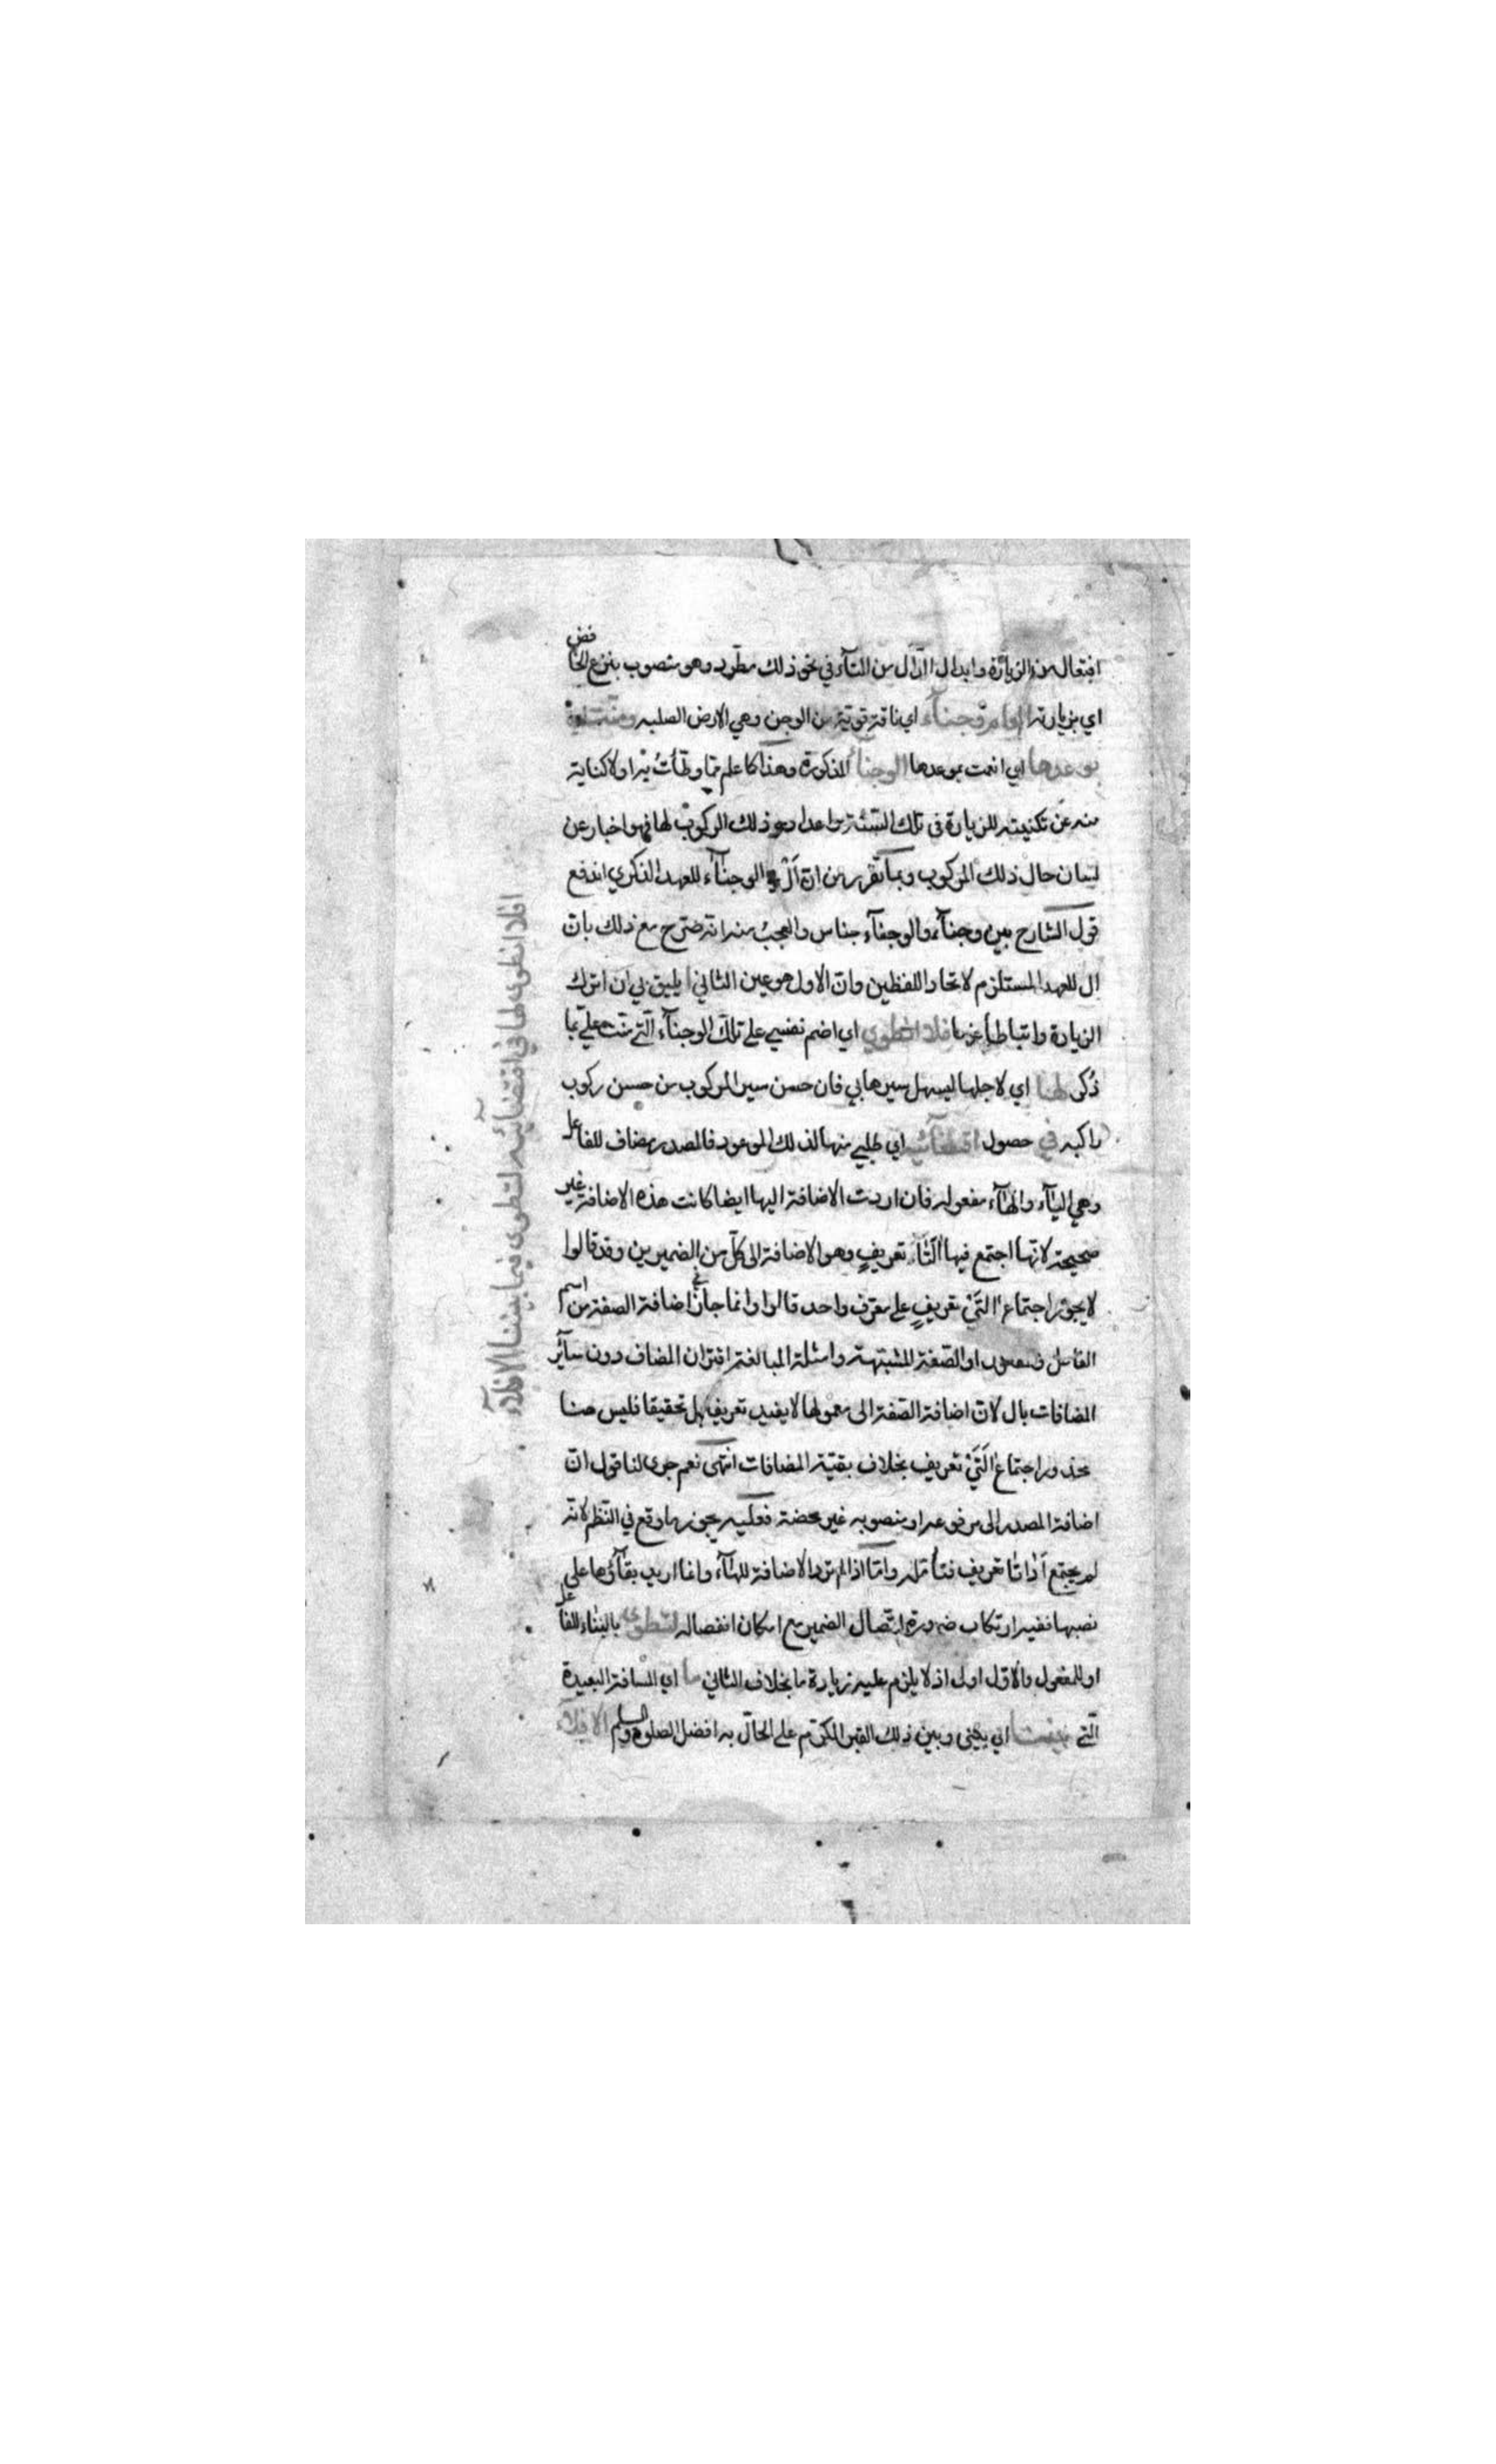 افتعال من الزيارة وابدال الدال من التآء في نحو ذلك مطرد وهو منصوب بنزع الخافض
اي بزيارته العام وجنآء اي ناقة قوية من الوجن وهي الارض الصلبه ومنت
بوعدها اي انعمت بموعدها الوجنآء المذكورة وهذا كما علم مما وطأت به اولا كناية
منه عن تكنيته للزيارة في تلك السنة واعداد ذلك المركوب لها فهو اخبار عن
لسان حال ذلك المركوب وبما تقرر من ان ال في الوجنآء للعهد الذكري اندفع
قول الشارح بين وجنآء والوجنآء جناس والعجب منه انه صرح مع ذلك بان
ال للعهد المستلزم لاتحاد اللفظين وان الاول هو عين الثاني ايليق بي ان اترك
الزيارة واتباطأ عنها افلا انطوي اي اضم نفسي على تلك الوجنآء التي منت علي بما
ذكر لها اي لاجلها ليسهل سيرها بي فان حسن سير المركوب من حسن ركوب
راكبه في حصول اقتضآئيه اي طلبي منها لذلك الموعود فالمصدر مضاف للفاعل
وهي اليآء والهآء مفعوله فان اردت الاضافة اليها ايضا كانت هذه الاضافة غير
صحيحة لانها اجتمع فيها التا تعريف وهو الاضافة الى كل من الضميرين وقد قالوا
لا يجوز اجتماع التي تعريف على معرف واحد قالوا وانما جاز في اضافة الصفة من اسم
الفاعل والمفعول او الصفة المشبهة وامثلة المبالغة اقتران المضاف دون سآئر
المضافات بال لان اضافة الصفة الى معمولها لا يفيد تعريفا بل تحقيقا فليس هنا
محذور اجتماع التي تعريف بخلاف بقية المضافات انتهى نعم جرى لنا قول ان
اضافة المصدر الى مرفوعه او منصوبه غير محضة فعليه يجوز ما وقع في النظم لانه
لم يجتمع اداتا تعريف فتأمله واما اذا لم ترد الاضافة للهآء وانما اريد بقآؤها على
نصبها ففيه ارتكاب ضرورة اتصال الضمير مع امكان انفصاله لتطوى بالبناء للفاعل
او للمفعول والاول اولى اذ لا يلزم عليه زيادة ما بخلاف الثاني ما اي المسافة البعيدة
التي بيننا اي بيني وبين ذلك القبر المكرم على الحال به افضل الصلوة والسلم الافلآء
افلا انطوى لها في اقتضآئيه لتطوى فيما بيننا الافلآء